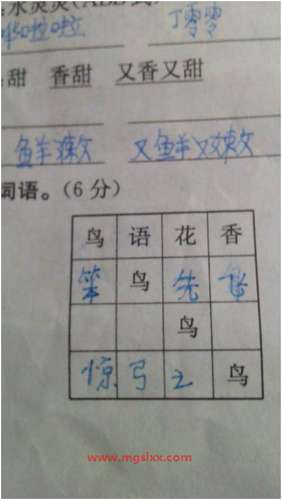 水灵灵(ABB式)
哗啦啦 丁零零
甜 香甜 又香又甜
鲜嫩 又鲜又嫩
词语。(6分)
鸟 语 花 香
笨 鸟 先 飞
鸟
惊 弓 之 鸟
www.mgslxx.com